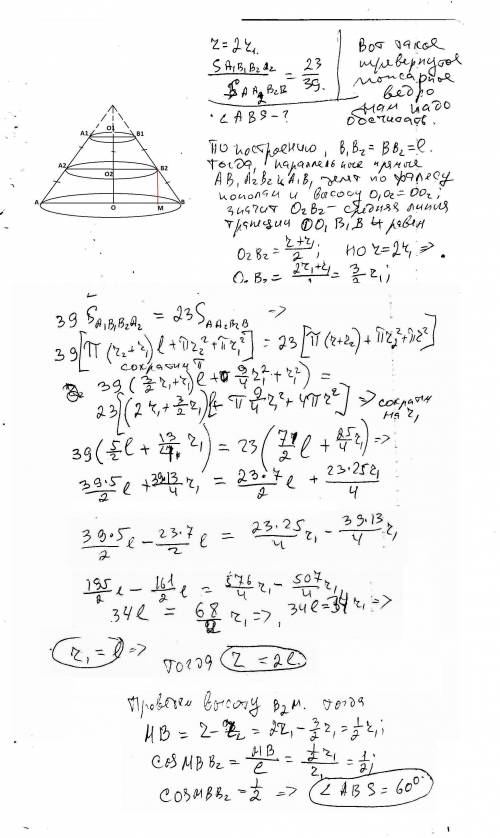 r = 2r₁
S A₁B₁B₂A₂ / S A A₂B₂B = 23 / 39.
∠ABS - ?
Вот такое
перевернутое
пожарное
ведро
нам надо
обсчитать.
A1 O1 B1
A2 O2 B2
A O M B
По построению, B₁B₂ = BB₂ = l.
Тогда, параллельные прямые
AB, A₂B₂ и A₁B₁ делят по Фалесу
пополам и высоту O₁O₂ = OO₂,
значит O₂B₂ – средняя линия
трапеции OO₁B₁B и равен
O₂B₂ = (r + r₁)/2; но r = 2r₁ ⇒
O₂B₂ = (2r₁ + r₁)/ = 3/2 r₁;
39 S A₁B₁B₂A₂ = 23 S A A₂B₂B ⇒
39[π(r₂ + r₁)l + πr₂² + πr₁²] = 23[π(r + r₂) + πr₂² + πr²]
сократим π
39(3/2 r₁ + r₁)l + 9/4 r₁² + r₁²) =
23[(2r₁ + 3/2 r₁)l + π 9/4 r₁² + 4πr²] ⇒ сократим на r₁
39(5/2 l + 13/4 r₁) = 23(7/2 l + 25/4 r₁) ⇒
39·5/2 l + 39·13/4 r₁ = 23·7/2 l + 23·25r₁/4
39·5/2 l - 23·7/2 l = 23·25/4 r₁ - 39·13/4 r₁
195/2 l - 161/2 l = 576/4 r₁ - 507/4 r₁
34l = 68/2 r₁ ⇒, 34l = 34 r₁ ⇒
r₁ = l ⇒
тогда r = 2l.
Проведем высоту B₂M. тогда
MB = r - r₂ = 2r₁ - 3/2 r₁ = 1/2 r₁;
cos MBB₂ = MB/l = 1/2 r₁/r₁ = 1/2;
cos MBB₂ = 1/2 ⇒ ∠ABS = 60°